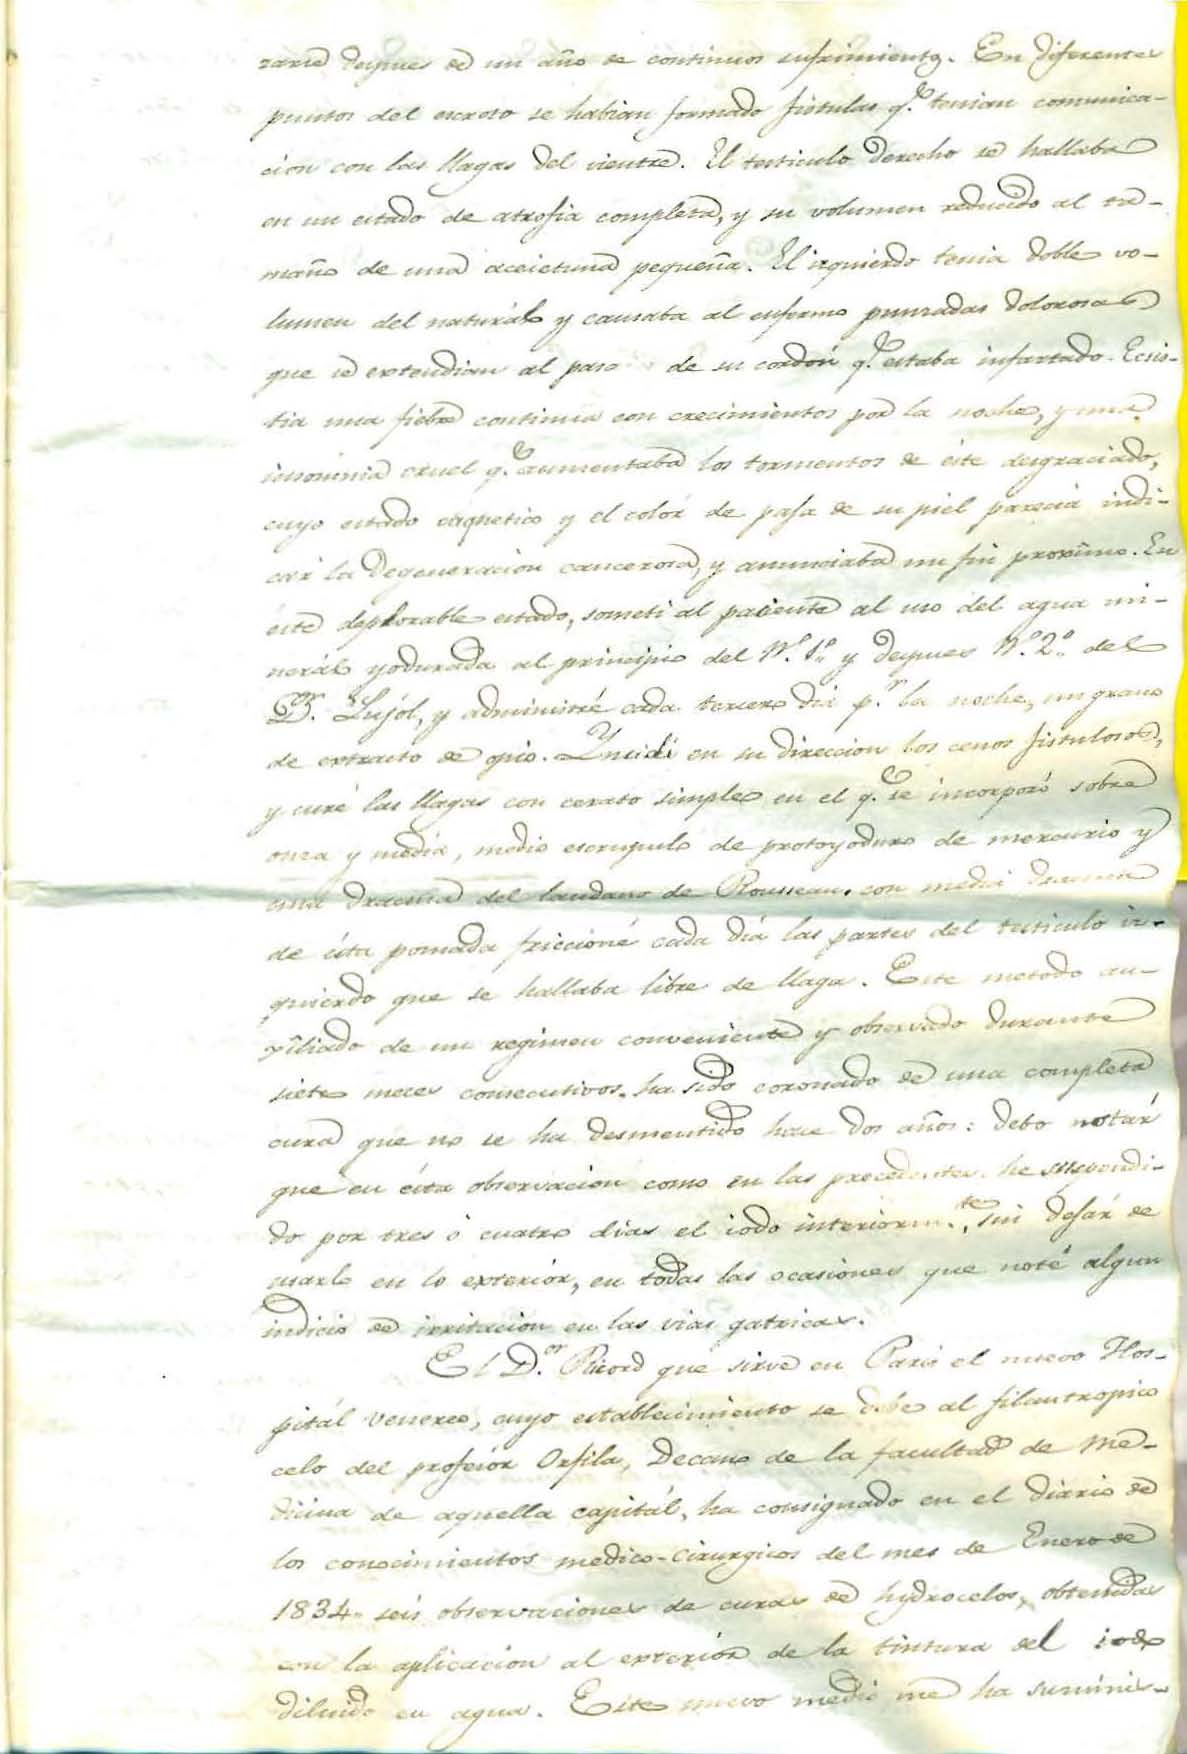 rarie despues de un año de continuos sufrimientos. En diferentes
puntos del escroto se habian formado fistulas q.e tenian comunica-
cion con las llagas del vientre. El testiculo derecho se hallaba
en un estado de atrofia completa, y su volumen reducido al ta-
maño de una aceietuna pequeña. El izquierdo tenia doble vo-
lumen del naturál y causaba al enfermo punzadas dolorosas
que se extendian al paso de su cordón q.e estaba infartado. Ecsis-
tia una fiebre continua con crecimientos por la noche, y una
insomnia cruel q.e aumentaba los tormentos de éste desgraciado,
cuyo estado caquetico y el colór de paja de su piel parecia indi-
car la degeneracion cancerosa, y anunciaba un fin proximo. En
éste deplorable estado, someti al paciente al uso del agua mi-
nerál yodurada al principio del N.o 1.o y despues N.o 2.o del
D.or Lujól, y administré cada tercero dia p.r la noche, un grano
de extracto de opio. Yncidí en su direccion los cenos fistulosos,
y curé las llagas con cerato simple en el q.e se incorporó sobre
onza y media, medio escrupulo de protoyoduro de mercurio y
una dracma del laudano de Rousseau. con media dracma
de ésta pomada friccioné cada dia las partes del testiculo iz-
quierdo que se hallaba libre de llaga. Este metodo au-
xiliado de un regimen conveniente y observado durante
siete meces consecutivos, ha sido coronado de una completa
cura que no se ha desmentido hace dos años: debo notár
que en ésta observacion como en las precedentes he suspendi-
do por tres ó cuatro dias el iodo interiorm.te, sin dejár de
usarlo en lo exteriór, en todas las ocasiones que noté algun
indicio de irritacion en las vias gatricas.
El D.or Ricord que sirve en Paris el nuevo Hos-
pitál Venereo, cuyo establecimiento se debe al filantropico
celo del profesór Orfila, Decano de la facultad de Me-
dicina de aquella capitál, ha consignado en el diario de
los conocimientos medico-cirurgicos del mes de Enero de
1834. seis observaciones de curas de hydrocelos, obtenidas
con la aplicacion al exteriór de la tintura del iodo
diluido en agua. Este nuevo medio me ha suminis-